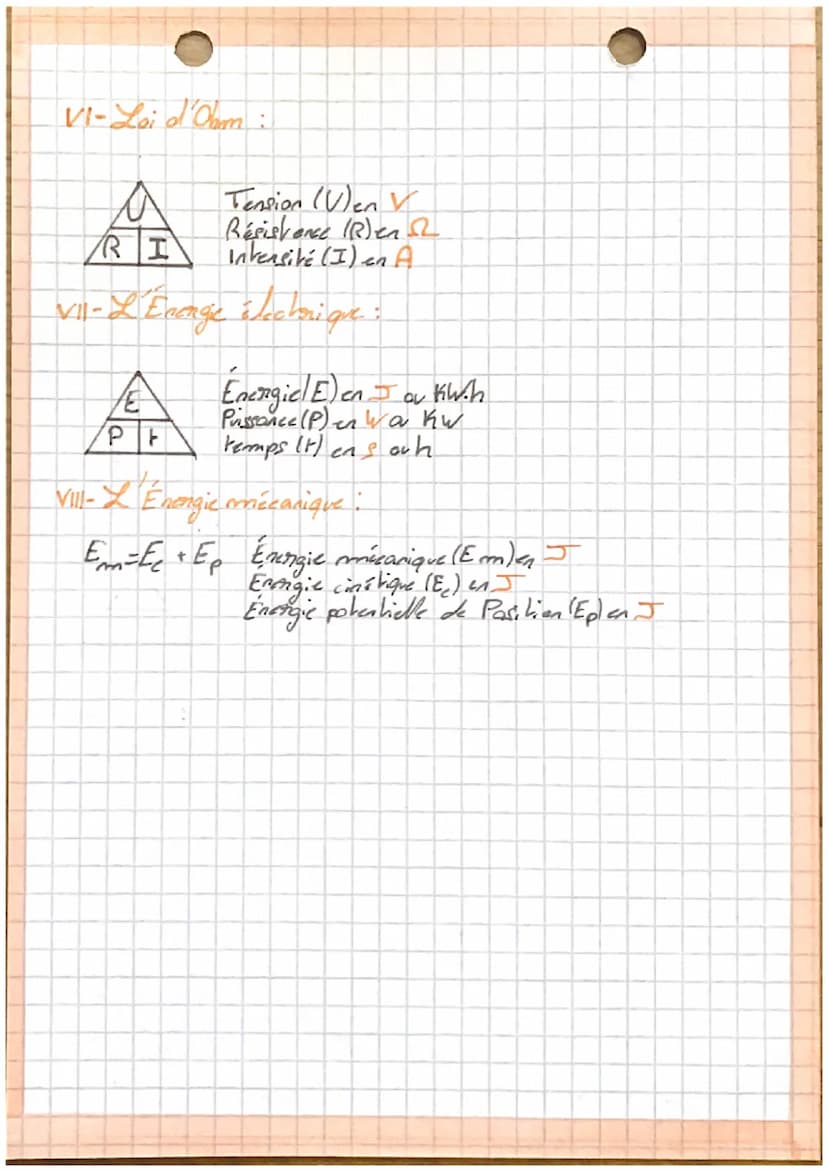 VI- Loi d'Ohm :
U
R I
Tension (U) en V
Résistance (R) en Ω
Intensité (I) en A
VII- L'Énergie électrique :
E
P t
Énergie (E) en J ou KW.h
Puissance (P) en W ou KW
temps (t) en s ou h
VIII- L'Énergie mécanique :
Em=Ec + Ep Énergie mécanique (Em) en J
Énergie cinétique (Ec) en J
Énergie potentielle de Position (Ep) en J